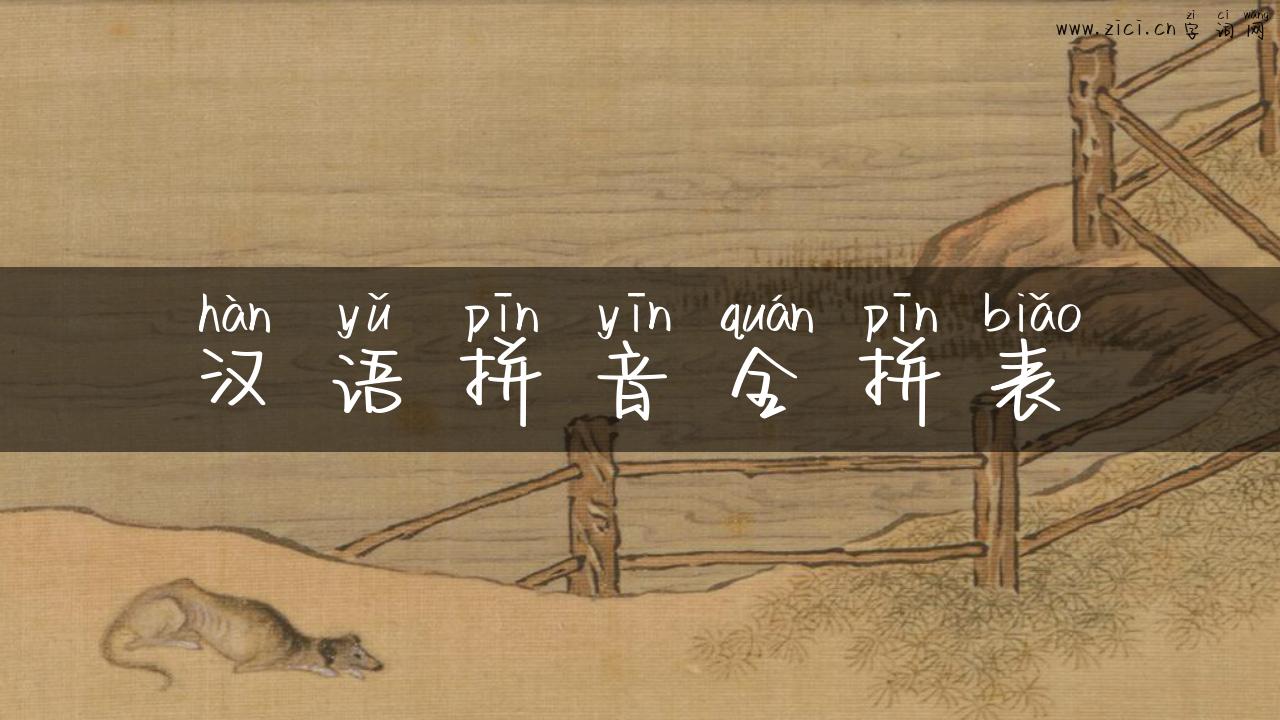 zi ci wang
www.zici.cn 字词网
hàn yǔ pīn yīn quán pīn biǎo
汉语拼音全拼表